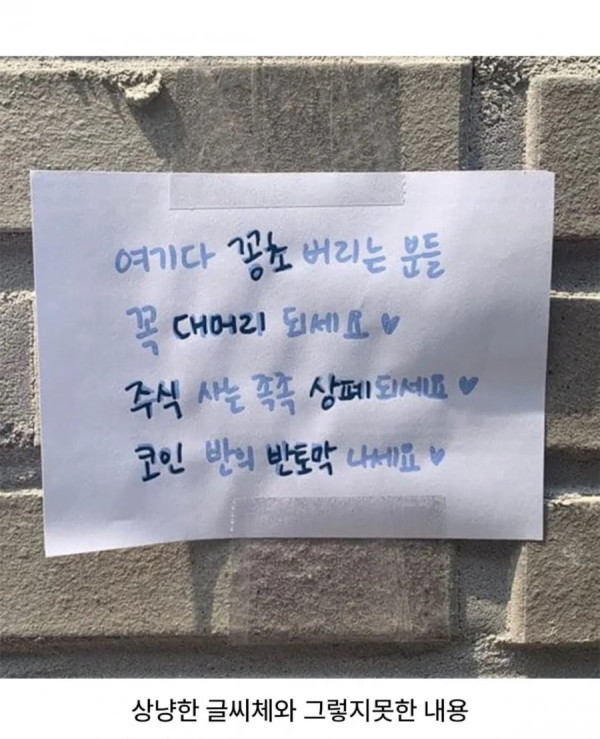 여기다 꽁초 버리는 분들
꼭 대머리 되세요 ♥
주식 사는 족족 상폐되세요 ♥
코인 반의 반토막 나세요 ♥
상냥한 글씨체와 그렇지못한 내용